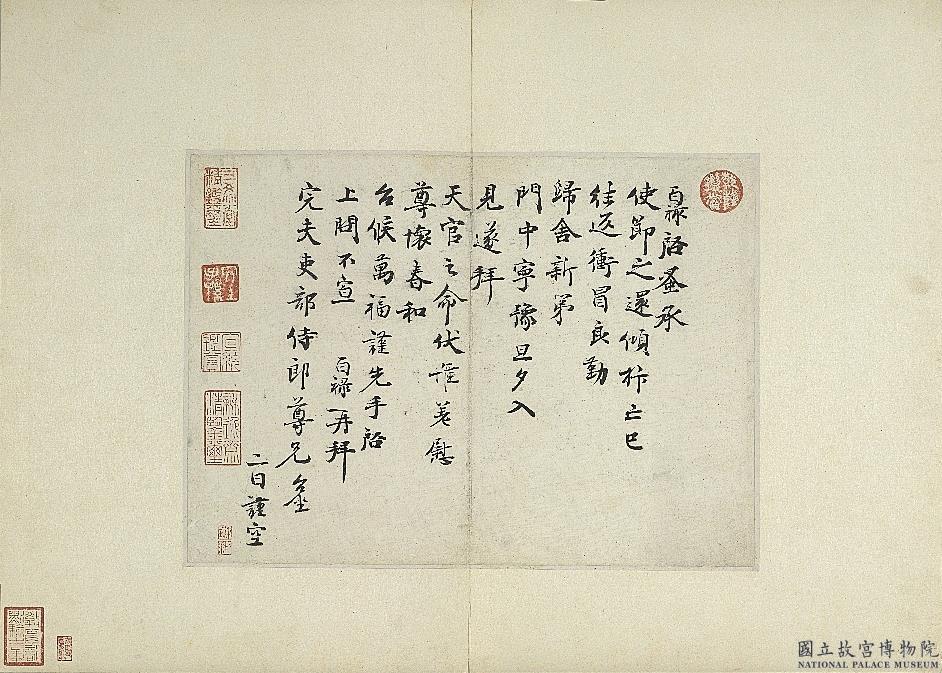 百祿啓蚤承
使節之還傾抃亡已
往返衝冒良勤
歸舍新第
門中寧豫旦夕入
見遂拜
天官之命伏惟差慰
尊懷春和
台候萬福謹先手啓
上問不宣 百祿再拜
完夫吏部侍郎尊兄 台坐
二日謹空
國立故宮博物院
NATIONAL PALACE MUSEUM